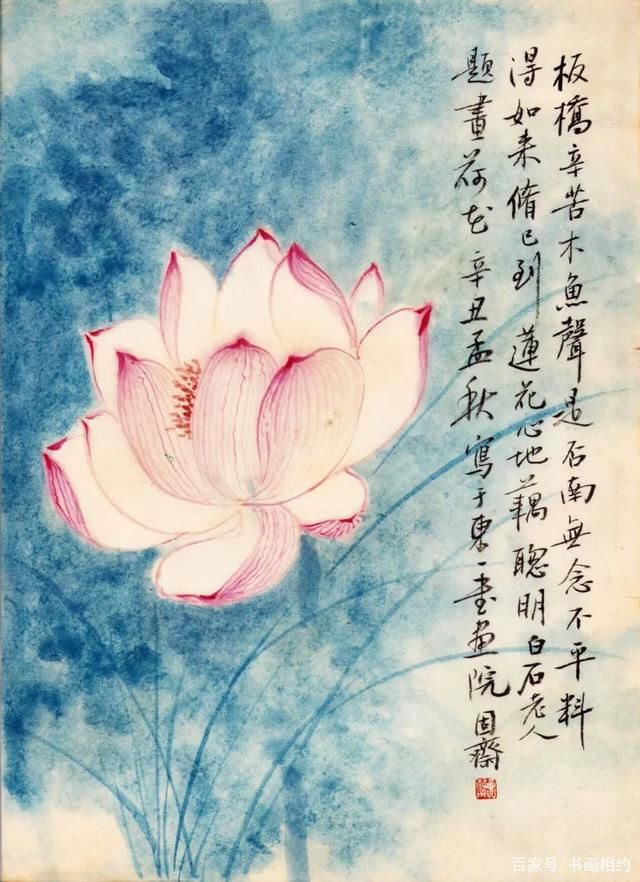 板橋辛苦木魚聲是否南無念不平料
得如来脩已到蓮花心地藕聰明白石老人
題畫荷花辛丑孟秋寫于東一書画院固齋
百家号/书画相约